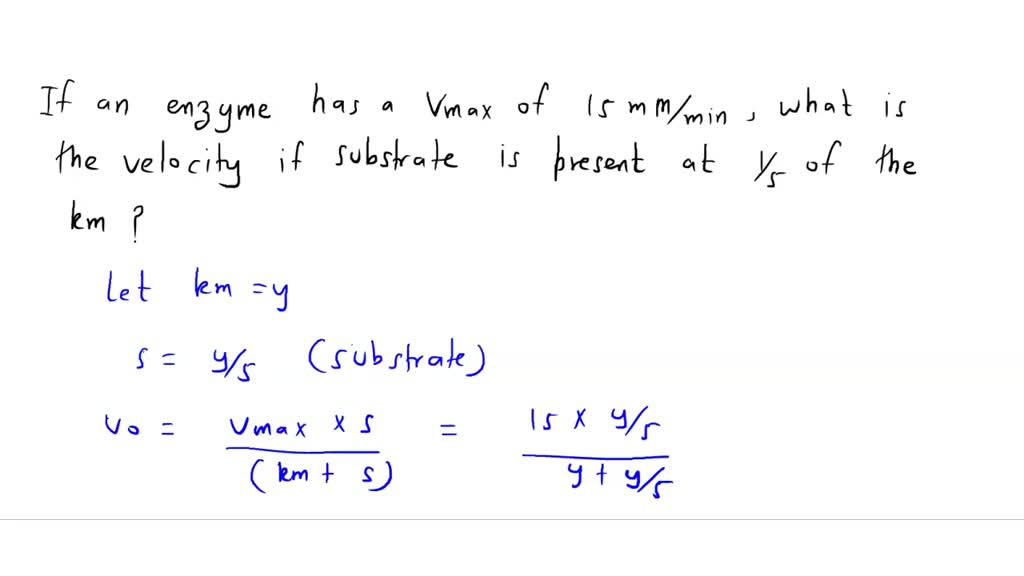 If an enzyme has a Vmax of 15 mM/min, what is
the velocity if substrate is present at 1/5 of the
km ?
Let km = y
s = y/5 (substrate)
Vo = Vmax x s / (km + s) = 15 x y/5 / y + y/5